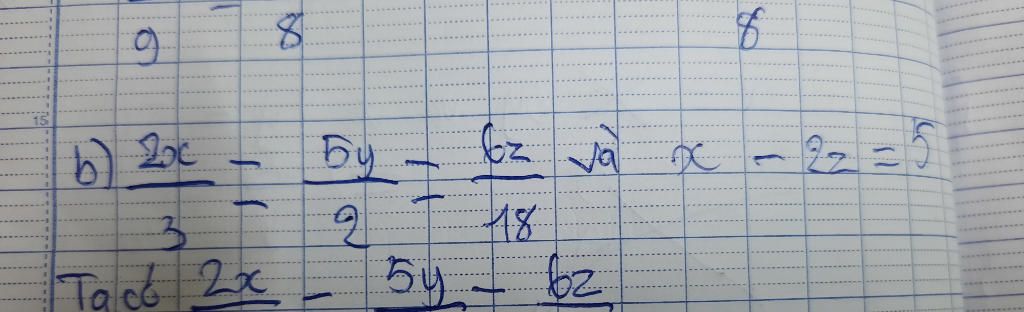 9 8 8
15
b) 2x/3 = 5y/2 = 6z/18 và x - 2z = 5
Ta có 2x = 5y = 6z